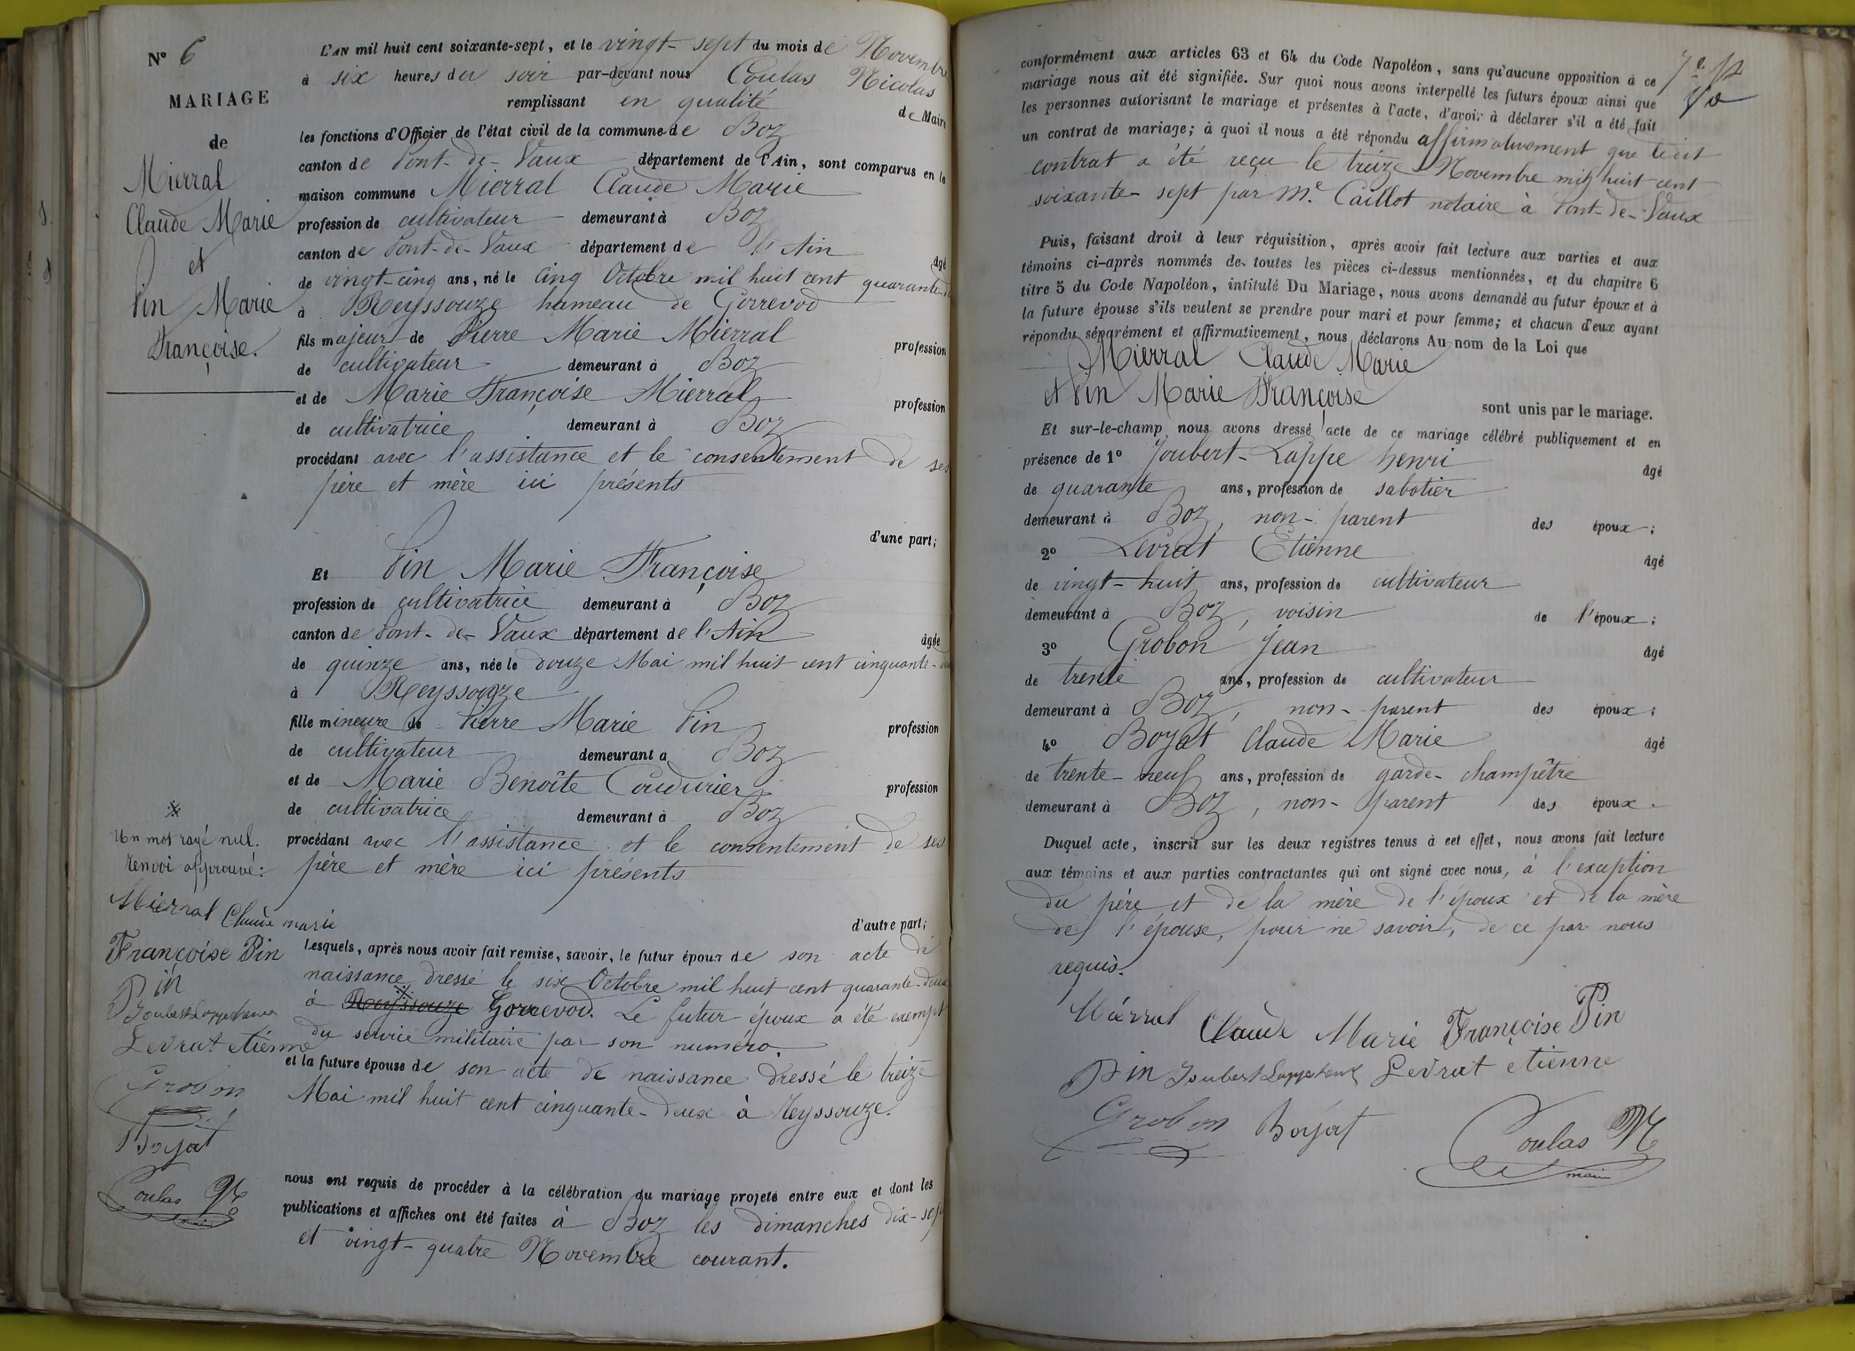 N° 6
MARIAGE
de
Mierral
Claude Marie
et
Pin Marie
Françoise.
L'AN mil huit cent soixante-sept, et le vingt-sept du mois de Novembre
à six heures du soir par-devant nous Coulas Nicolas
remplissant en qualité de Maire
les fonctions d'Officier de l'état civil de la commune de Boz
canton de Pont-de-Vaux département de l'Ain, sont comparus en la
maison commune Mierral Claude Marie
profession de cultivateur demeurant à Boz
canton de Pont-de-Vaux département de l'Ain âgé
de vingt-cinq ans, né le cinq Octobre mil huit cent quarante-
à Reyssouze hameau de Gorrevod
fils majeur de Pierre Marie Mierral profession
de cultivateur demeurant à Boz
et de Marie Françoise Mierral profession
de cultivatrice demeurant à Boz
procédant avec l'assistance et le consentement de ses
père et mère ici présents
d'une part;
Et Pin Marie Françoise
profession de cultivatrice demeurant à Boz
canton de Pont-de-Vaux département de l'Ain âgée
de quinze ans, née le douze Mai mil huit cent cinquante-
à Reyssouze
fille mineure de Pierre Marie Pin profession
de cultivateur demeurant à Boz
et de Marie Benoîte Couduries profession
de cultivatrice demeurant à Boz
procédant avec l'assistance et le consentement de ses
père et mère ici présents
d'autre part;
Lesquels, après nous avoir fait remise, savoir, le futur époux de son acte de
naissance dressé le six Octobre mil huit cent quarante-deux
à Reyssouze Gorrevod. Le futur époux a été exempt
du service militaire par son numéro.
et la future épouse de son acte de naissance dressé le treize
Mai mil huit cent cinquante-deux à Reyssouze.
nous ont requis de procéder à la célébration du mariage projeté entre eux et dont les
publications et affiches ont été faites à Boz les dimanches dix-sept
et vingt-quatre Novembre courant.
Un mot rayé nul.
Renvoi approuvé:
Mierral Claude marie
Françoise Pin
Pin
Joubert Lappe henri
Levrat etienne
Grobon
Boyat
Coulas N
maire
conformément aux articles 63 et 64 du Code Napoléon, sans qu'aucune opposition à ce
mariage nous ait été signifiée. Sur quoi nous avons interpellé les futurs époux ainsi que
les personnes autorisant le mariage et présentes à l'acte, d'avoir à déclarer s'il a été fait
un contrat de mariage; à quoi il nous a été répondu affirmativement que ledit
contrat a été reçu le treize Novembre mil huit cent
soixante-sept par Me. Caillot notaire à Pont-de-Vaux
Puis, faisant droit à leur réquisition, après avoir fait lecture aux parties et aux
témoins ci-après nommés de toutes les pièces ci-dessus mentionnées, et du chapitre 6
titre 5 du Code Napoléon, intitulé Du Mariage, nous avons demandé au futur époux et à
la future épouse s'ils veulent se prendre pour mari et pour femme; et chacun d'eux ayant
répondu séparément et affirmativement, nous déclarons Au nom de la Loi que
Mierral Claude Marie
et Pin Marie Françoise
sont unis par le mariage.
Et sur-le-champ nous avons dressé acte de ce mariage célébré publiquement et en
présence de 1° Joubert-Lappe henri âgé
de quarante ans, profession de sabotier
demeurant à Boz, non-parent des époux;
2° Levrat Etienne âgé
de vingt-huit ans, profession de cultivateur
demeurant à Boz, voisin de l'époux;
3° Grobon Jean âgé
de trente ans, profession de cultivateur
demeurant à Boz, non-parent des époux;
4° Boyat Claude Marie âgé
de trente-neuf ans, profession de garde-champêtre
demeurant à Boz, non-parent des époux.
Duquel acte, inscrit sur les deux registres tenus à cet effet, nous avons fait lecture
aux témoins et aux parties contractantes qui ont signé avec nous, à l'exception
du père et de la mère de l'époux et de la mère
de l'épouse, pour ne savoir, de ce par nous
requis.
Miérral Claude Marie Françoise Pin
Pin Joubert Lappe henri Levrat etienne
Grobon Boyat Coulas N
maire